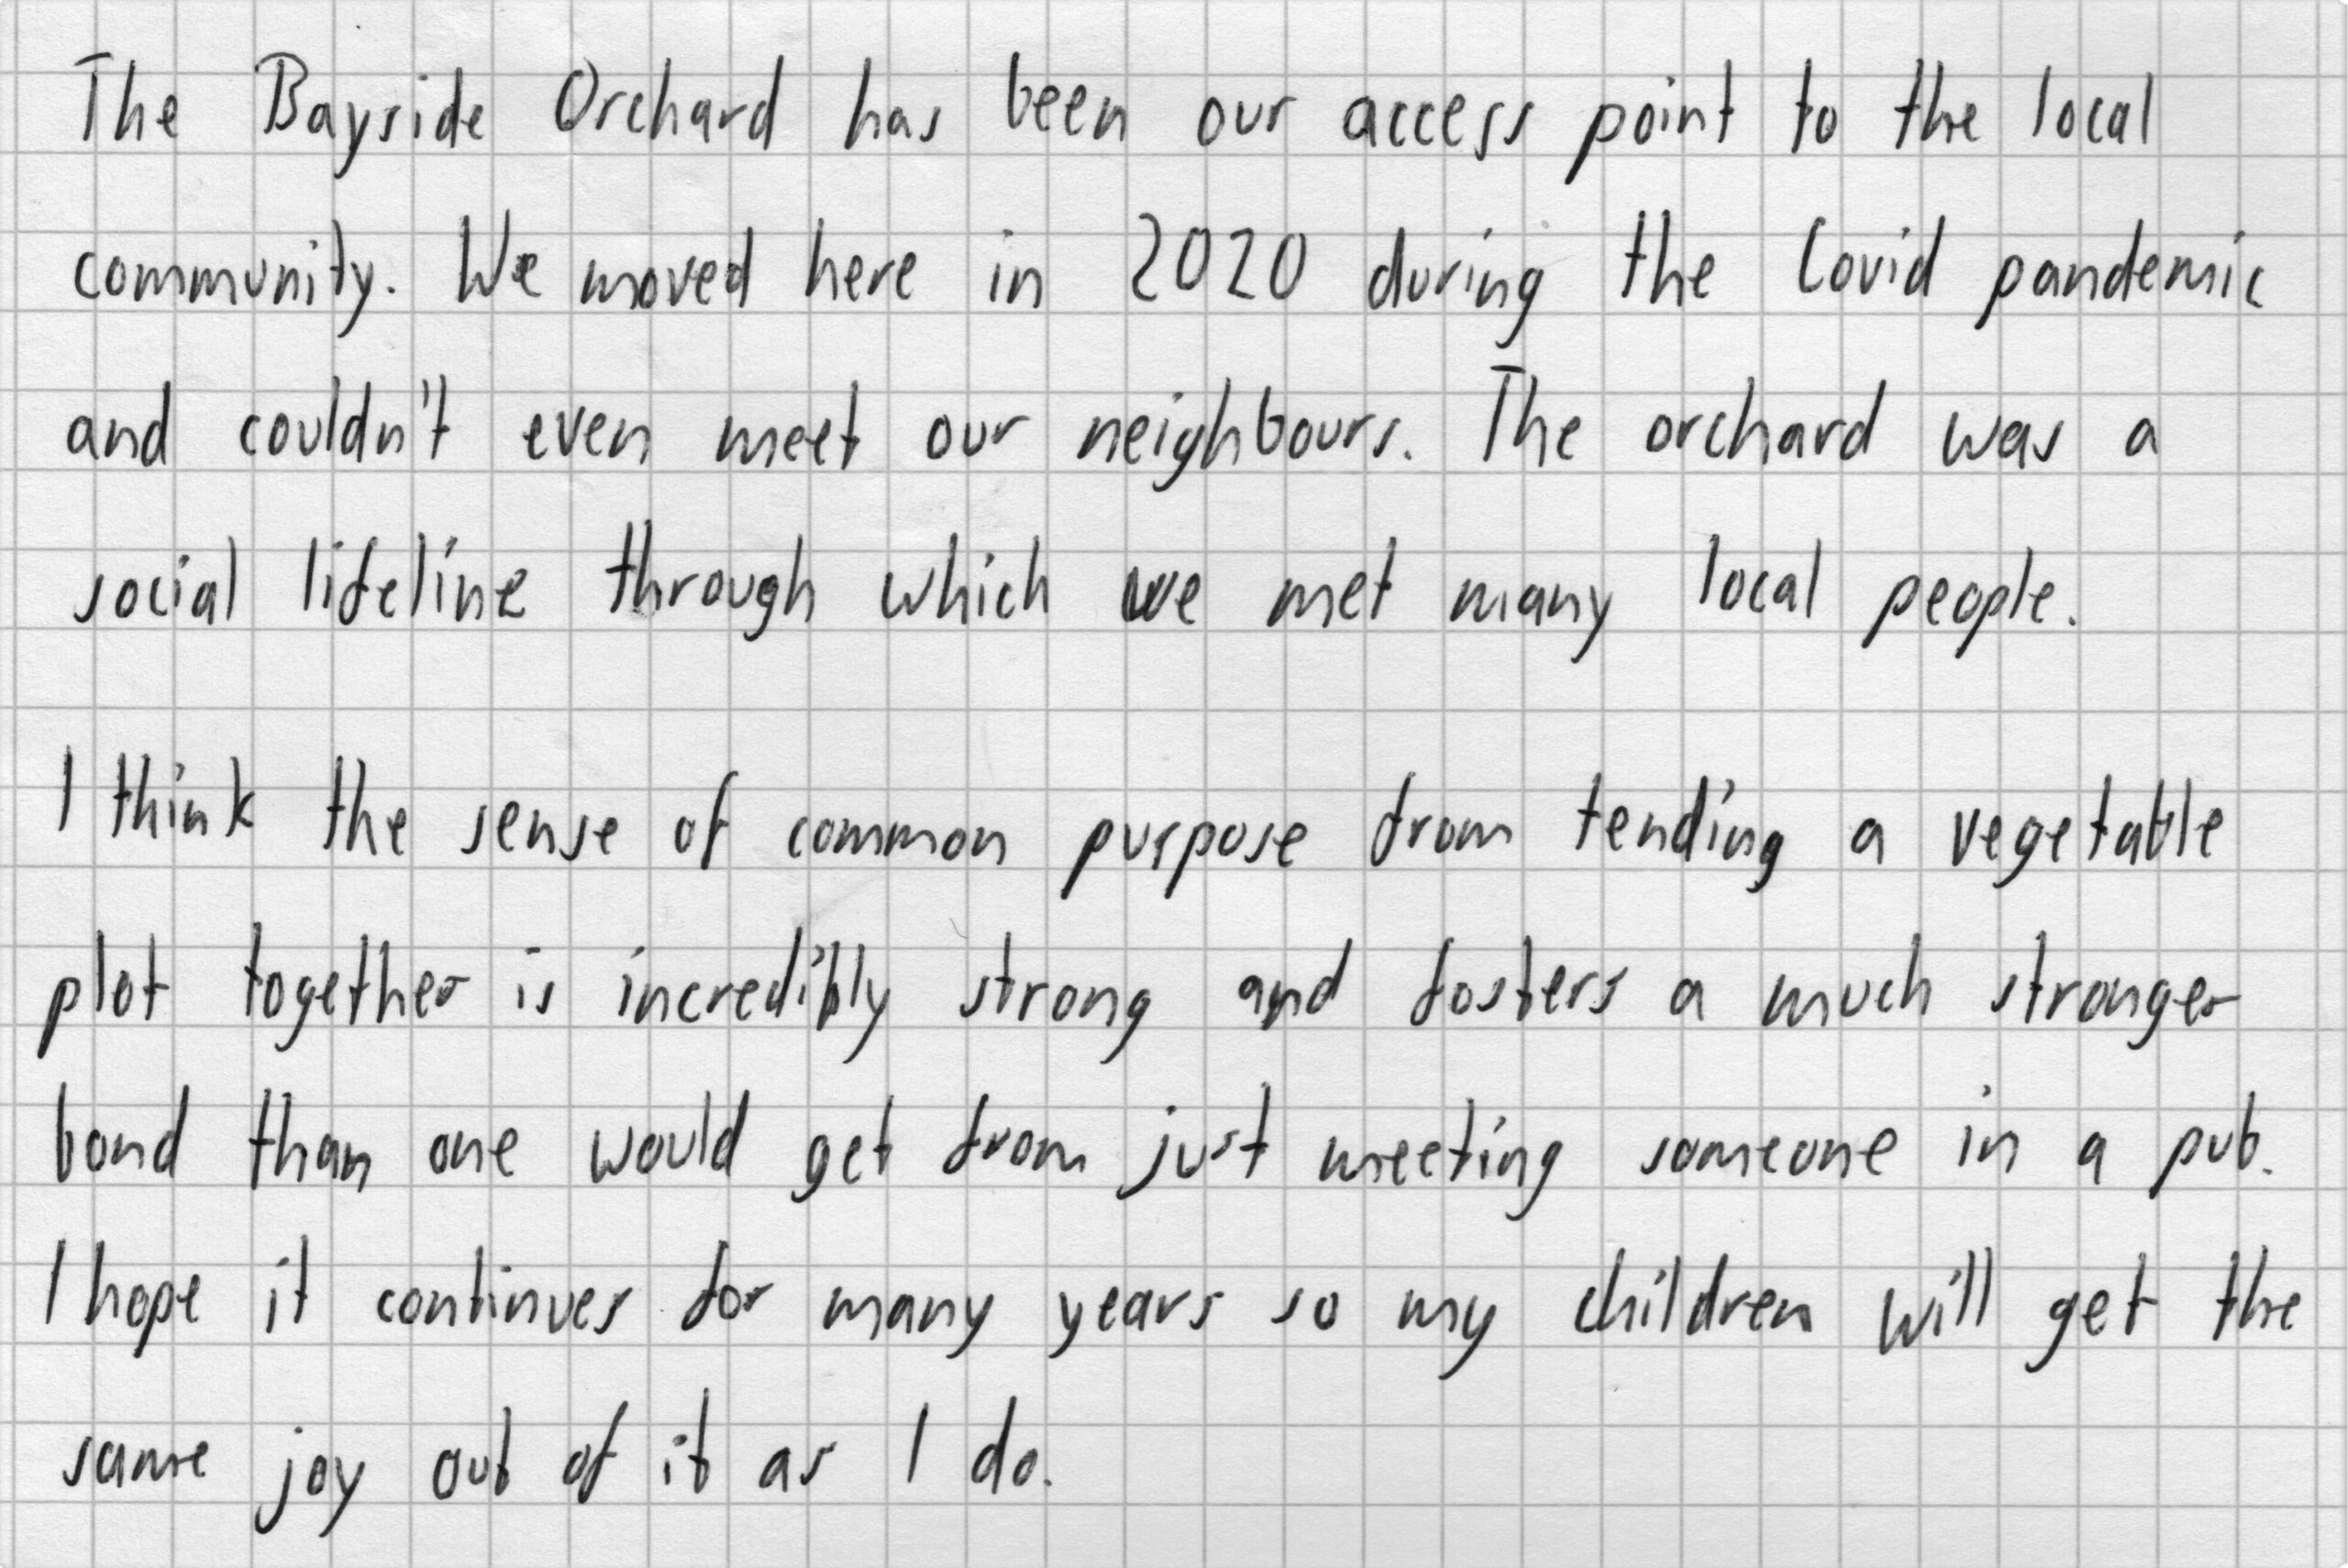 The Bayside Orchard has been our access point to the local
community. We moved here in 2020 during the Covid pandemic
and couldn't even meet our neighbours. The orchard was a
social lifeline through which we met many local people.
I think the sense of common purpose from tending a vegetable
plot together is incredibly strong and fosters a much stronger
bond than one would get from just meeting someone in a pub.
I hope it continues for many years so my children will get the
same joy out of it as I do.